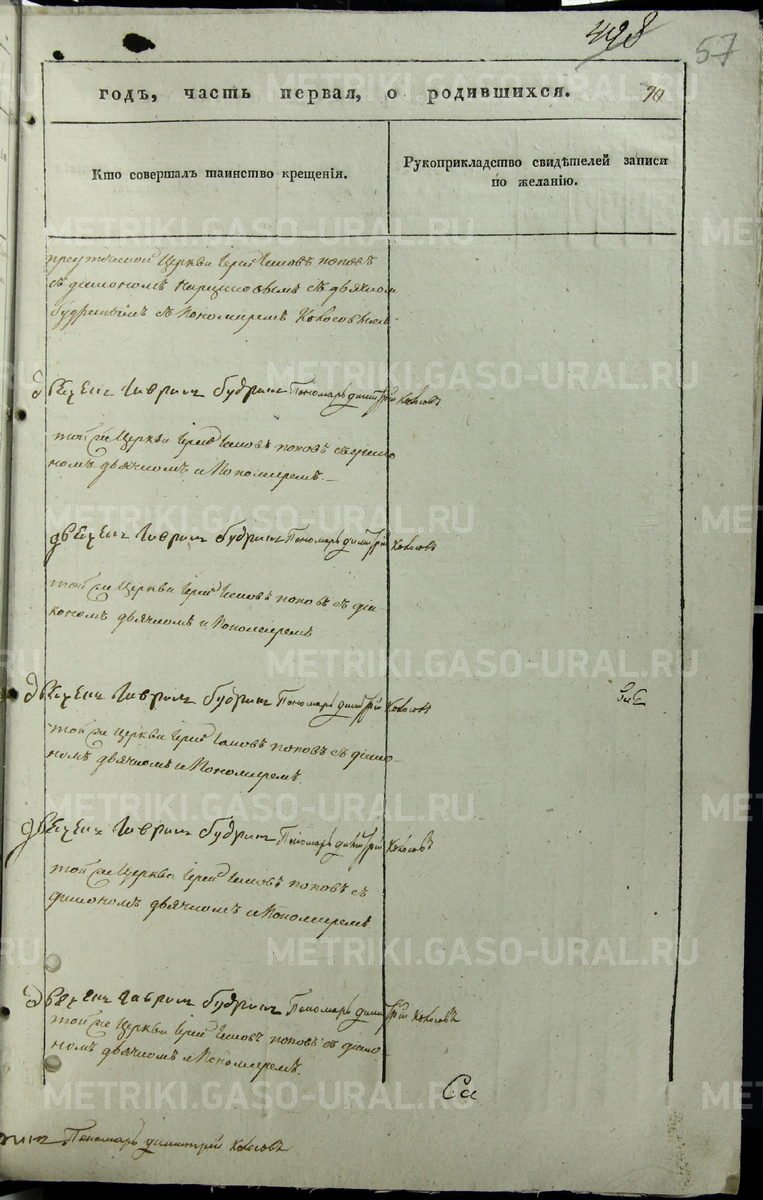 498
57
годъ, часть первая, о родившихся. 70
Кто совершалъ таинство крещенія.
Рукоприкладство свидѣтелей записи по желанію.
Церкви Іерей Іаковъ поповъ
съ діакономъ съ дьячком
будринымъ съ Пономаремъ Кокосовымъ
Гаврилъ будринъ Пономарь димитрій Кокосовъ
той же Церкви Іерей Іаковъ поповъ съ діако
номъ дьячкомъ и Пономаремъ.
Гаврилъ будринъ Пономарь димитрій Кокосовъ
той же Церкви Іерей Іаковъ поповъ съ діа
кономъ дьячкомъ и Пономаремъ
Гаврилъ будринъ Пономарь димитрій Кокосовъ
той же Церкви Іерей Іаковъ поповъ съ діако
номъ дьячкомъ и Пономаремъ.
Гаврилъ будринъ Пономарь димитрій Кокосовъ
той же Церкви Іерей Іаковъ поповъ съ
діакономъ дьячкомъ и Пономаремъ
Гаврилъ будринъ Пономарь димитрій Кокосовъ
той же Церкви Іерей Іаковъ поповъ съ діако
номъ дьячкомъ и Пономаремъ.
Пономарь димитрій Кокосовъ
METRIKI.GASO-URAL.RU